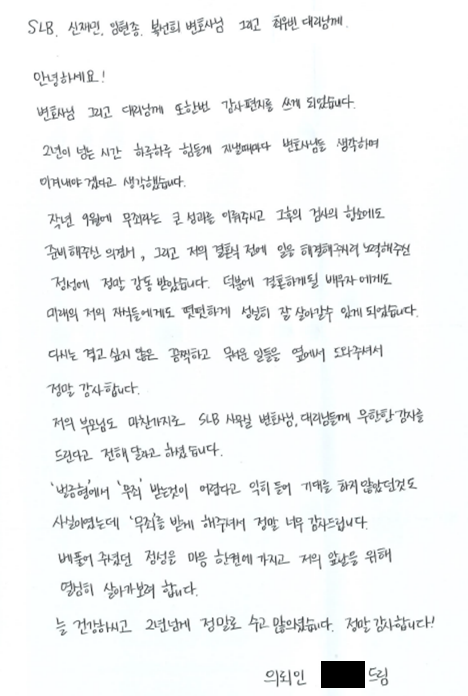 SLB. 신재민, 임현종, 복선희 변호사님 그리고 최우빈 대리님께.
안녕하세요!
변호사님 그리고 대리님께 또한번 감사편지를 쓰게 되었습니다.
2년이 넘는 시간 하루하루 힘들게 지낼때마다 변호사님들 생각하며
이겨내야 겠다고 생각했습니다.
작년 9월에 무죄라는 큰 성과를 이뤄주시고 그후의 검사의 항소에도
준비해주신 의견서, 그리고 저의 결혼식 전에 일을 해결해주시려 노력해주신
정성에 정말 감동 받았습니다. 덕분에 결혼하게될 배우자에게도
미래의 저의 자식들에게도 떳떳하게 성실히 잘 살아갈수 있게 되었습니다.
다시는 겪고 싶지 않은 끔찍하고 무서운 일들을 옆에서 도와주셔서
정말 감사합니다.
저의 부모님도 마찬가지로 SLB 사무실 변호사님, 대리님들께 무한한 감사를
드린다고 전해 달라고 하셨습니다.
'법공형'에서 '무죄' 받는것이 어렵다고 익히 들어 기대를 하지 않았던것도
사실이였는데 '무죄'를 받게 해주셔서 정말 너무 감사드립니다.
베풀어 주셨던 정성을 마음 한켠에 가지고 저의 앞날을 위해
열심히 살아가보려 합니다.
늘 건강하시고 2년넘게 정말로 수고 많으셨습니다. 정말 감사합니다!
의뢰인 드림